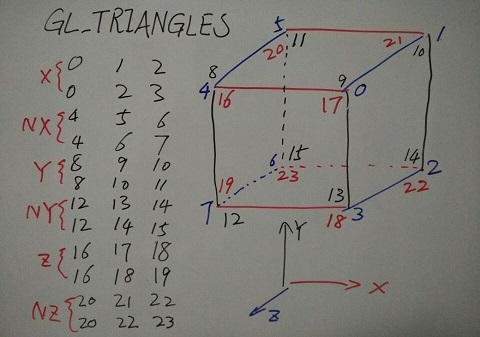 GL_TRIANGLES
X { 0 1 2
0 2 3
NX { 4 5 6
4 6 7
Y { 8 9 10
8 10 11
NY { 12 13 14
12 14 15
Z { 16 17 18
16 18 19
NZ { 20 21 22
20 22 23
5 11 20
21 10 1
8 4 16
9 0 17
6 15 23
14 2 22
19 7 12
13 18 3
Y
X
Z